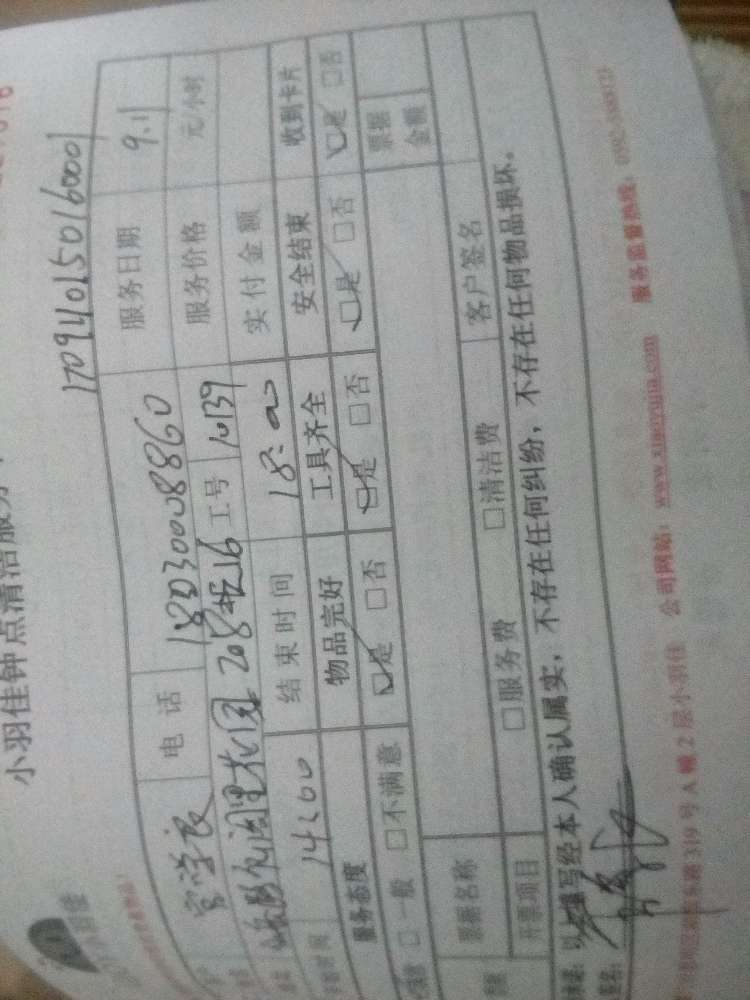 小羽佳钟点清洁服务
170940150160001
宫学良 电话 18030008860 服务日期 9.11
208 16 工号 10139 服务价格 元/小时
14:00 结束时间 18:00 实付金额
服务态度 物品完好 工具齐全 安全结束 收到卡片
□一般 □不满意 □是 □否 □是 □否 □是 □否 □是 □否
票据金额
票据名称 客户签名
开票项目 □服务费 □清洁费
填写经本人确认属实,不存在任何纠纷,不存在任何物品损坏。
319号A幢2层小羽佳 公司网站:www.xiaoyujia.com 服务监督热线: